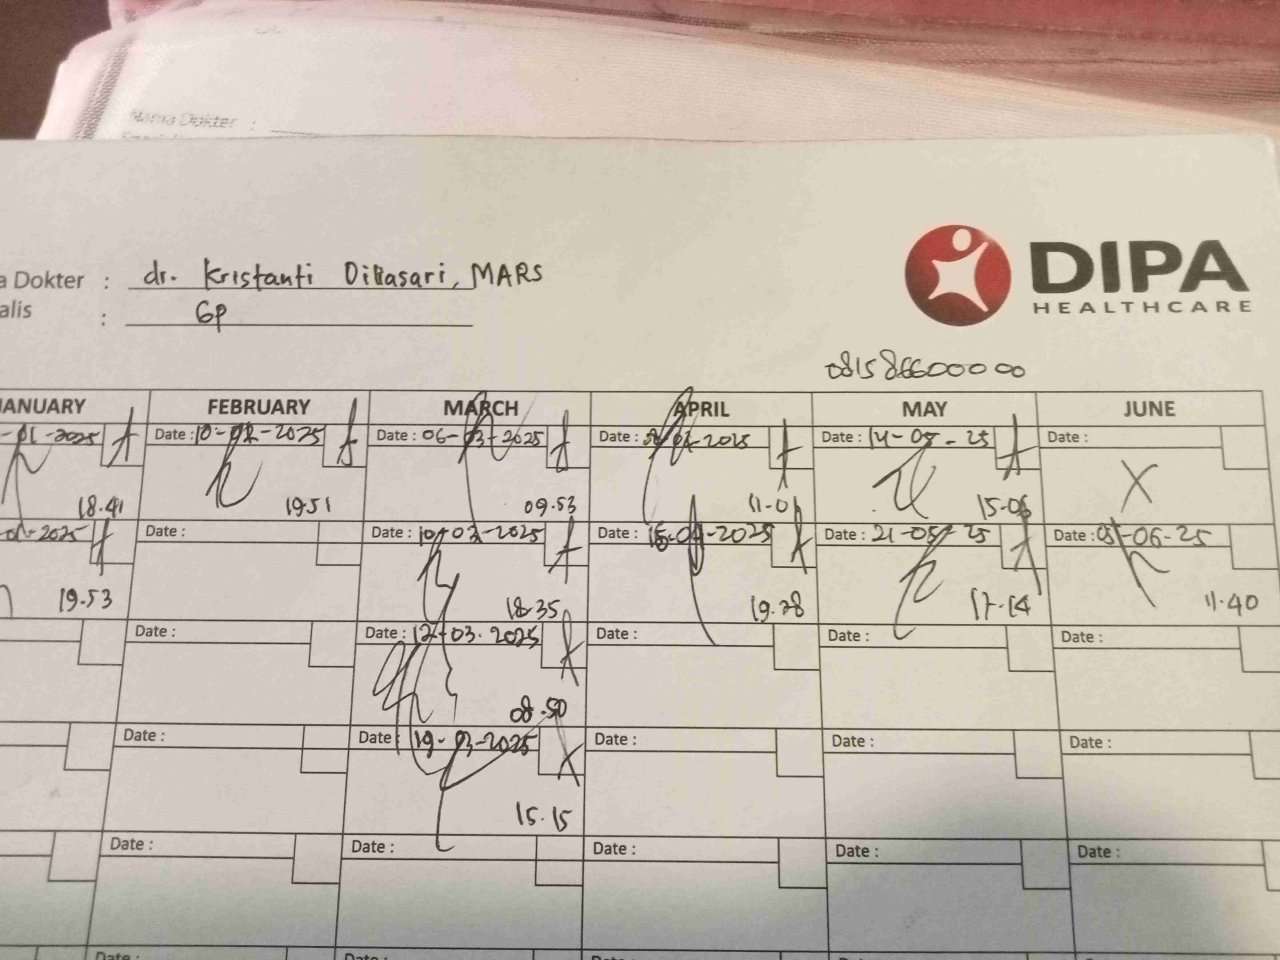 Nama Dokter :
a Dokter : dr. Kristanti Dibasari, MARS
alis : GP
DIPA
HEALTHCARE
081586600000
JANUARY FEBRUARY MARCH APRIL MAY JUNE
-01-2025 Date : 10-02-2025 Date : 06-03-2025 Date : -2025 Date : 14-05-25 Date :
18.41 19.51 09.53 11.01 15.06 X
-2025 Date : Date : 10-03-2025 Date : 15-04-2025 Date : 21-05-25 Date : 05-06-25
19.53 18.35 19.28 17.14 11.40
Date : Date : 12-03.2025 Date : Date : Date :
08.50
Date : Date : 19-03-2025 Date : Date : Date :
15.15
Date : Date : Date : Date : Date :
Date : Date :